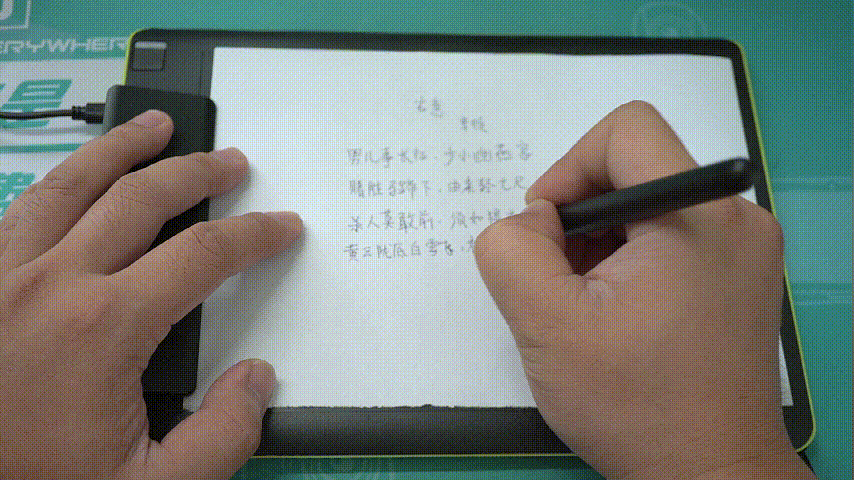 ERYWHER
是
古意
李颀
男儿事长征,少小幽燕客
赌胜马蹄下,由来轻七尺
杀人莫敢前,须如猬
黄云陇底白雪飞,